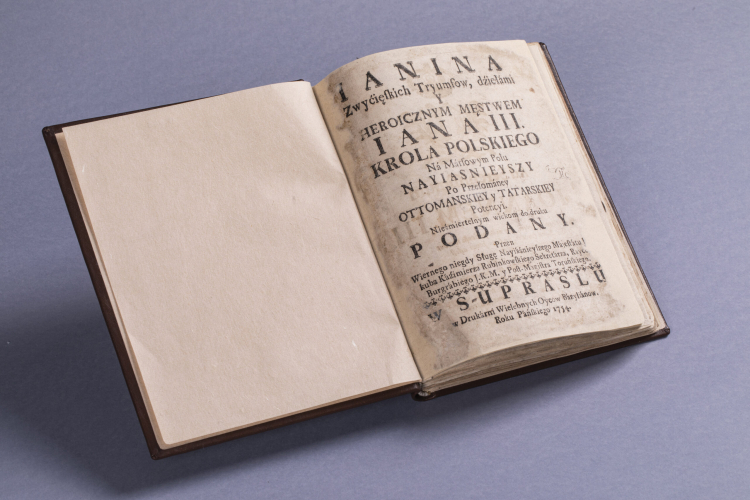 IANINA
Zwyćięskich Tryumfow, dźiełámi
Y
HEROICZNYM MĘSTWEM
IANA III.
KROLA POLSKIEGO
Ná Marsowym Polu
NAYIASNIEYSZY
Po Przełománey
OTTOMANSKIEY y TATARSKIEY
Potencyi.
Nieśmiertelnym wiekom do druku
PODANY.
Przez
Wiernego niegdy Sługę Nayiáśnieyszego Máiestatu
kuba Kázimierza Rubinkowskiego Sekretarza, Raycę
Burgrábiego J.K.M. y Post-Magistra Toruńskiego.
W S-UPRASLU
w Drukárni Wielebnych Oycow Bázylianow.
Roku Páńskiego 1734.